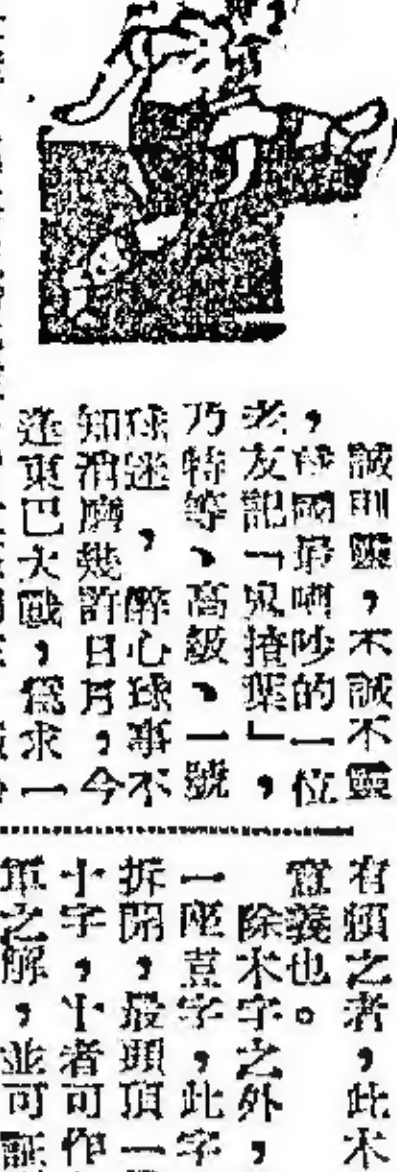 誠則靈，不誠不靈
，❲戲國最嘈吵的一位
老友記「鬼揸葉」，
乃特等、高級、一號
球迷，醉心球事不
知消磨幾許日月，今
逢東巴大戰，為求一
有類之者，此木
實義也。
除木字之外，
一座壴字，此字
拆開，最頭頂一
十字，十者可作
單之解，並可証